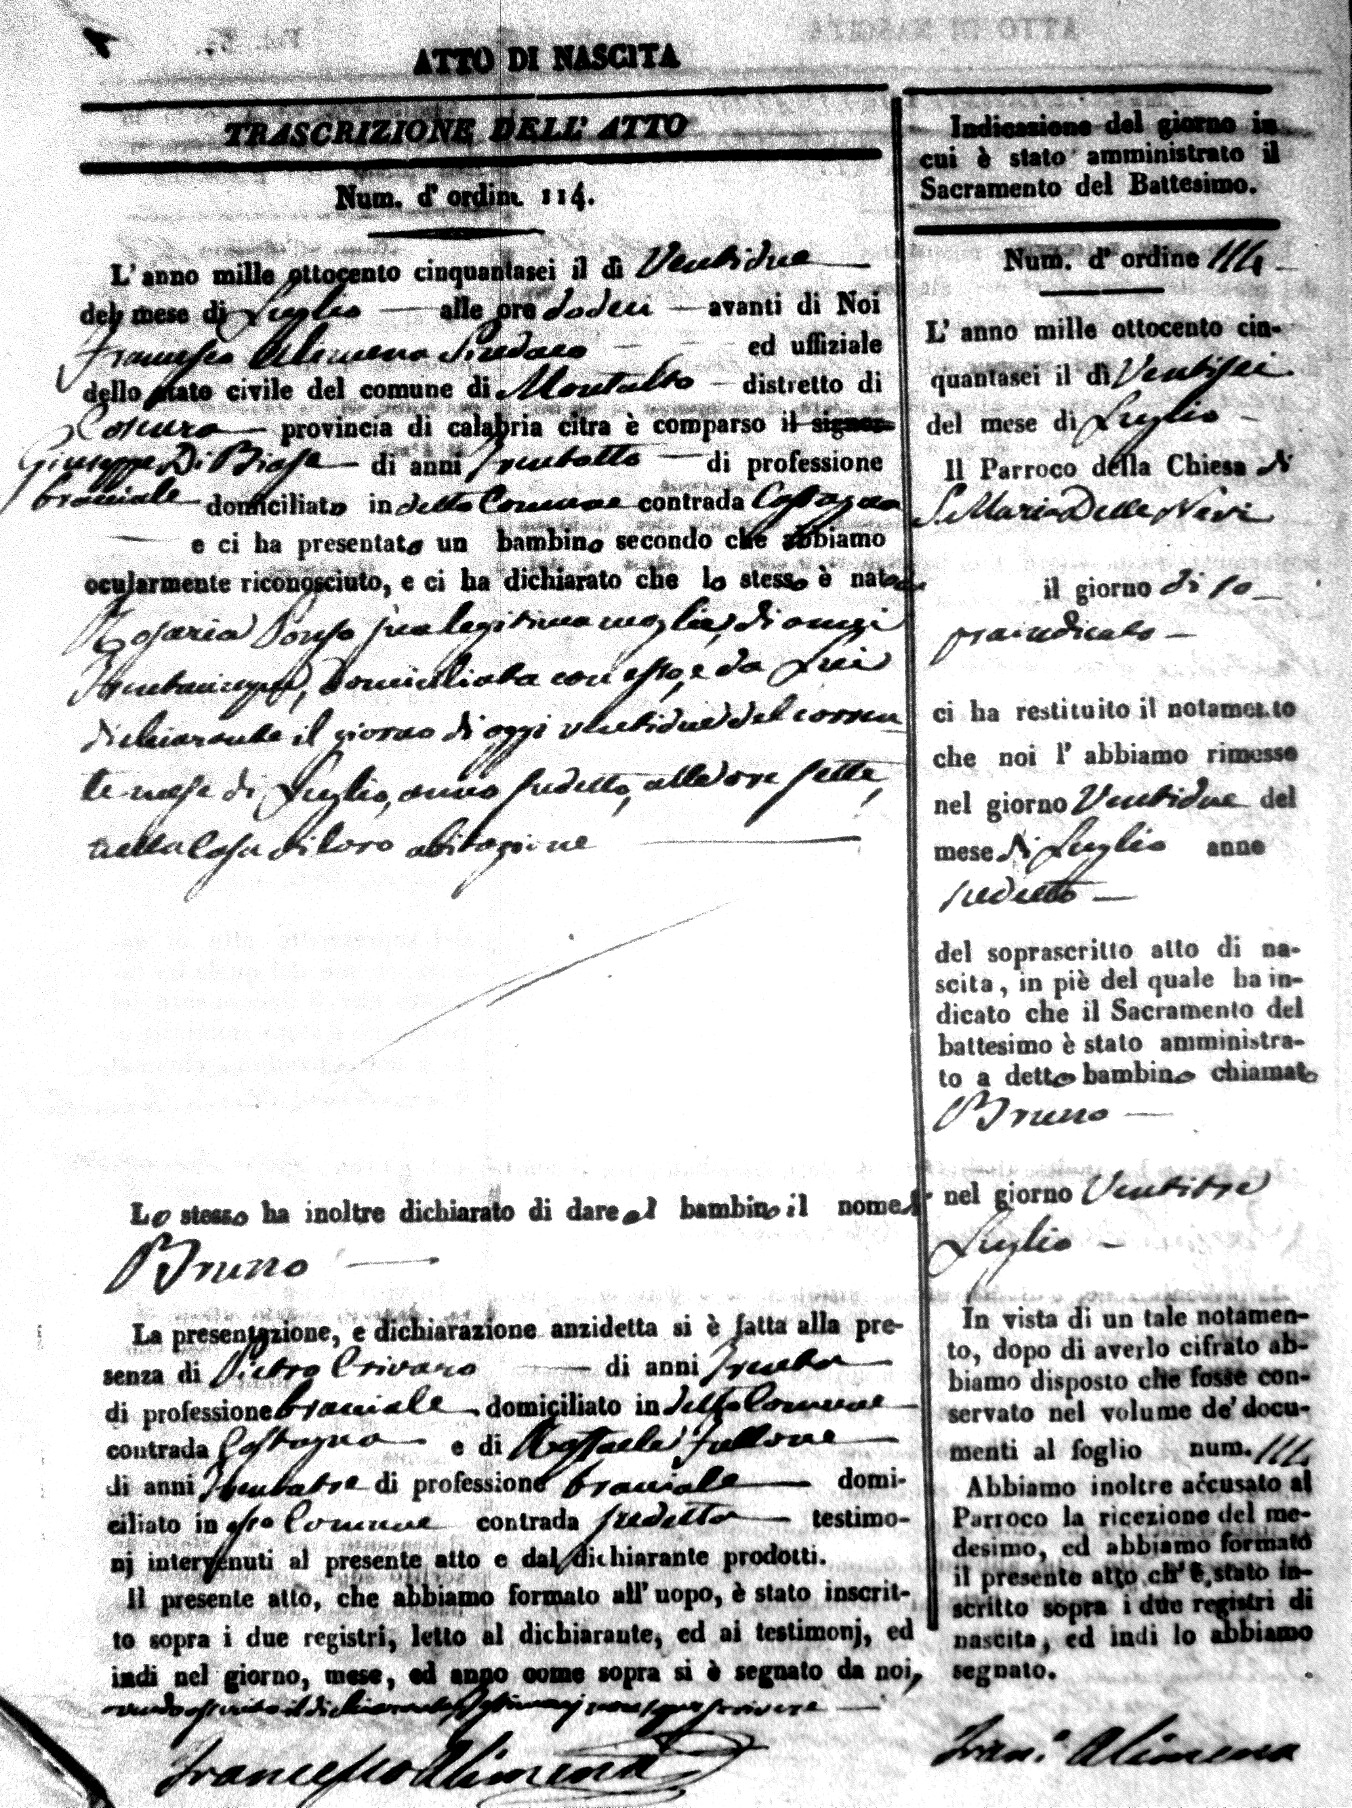 ATTO DI NASCITA
TRASCRIZIONE DELL' ATTO
Num. d' ordine 114.
L' anno mille ottocento cinquantasei il dì Ventidue
del mese di Luglio alle ore dodeci avanti di Noi
Francesco Alimena Sindaco ed uffiziale
dello stato civile del comune di Montalto distretto di
Cosenza provincia di calabria citra è comparso il signor
Giuseppe Di Biase di anni Trentotto di professione
bracciale domiciliato in detto Comune contrada Castagna
e ci ha presentato un bambino secondo che abbiamo
ocularmente riconosciuto, e ci ha dichiarato che lo stesso è nato da
Rosaria Ponso sua legitima moglie, di anni
Trentacinque, domiciliata con esso, e da Lui
dichiarante il giorno di oggi ventidue del corren
te mese di Luglio, anno sudetto, alle ore sette,
nella Casa di loro abitazione
Lo stesso ha inoltre dichiarato di dare al bambino il nome di
Bruno
La presentazione, e dichiarazione anzidetta si è fatta alla pre-
senza di Pietro Crivaro di anni Trenta
di professione bracciale domiciliato in detto Comune
contrada Castagna e di Raffaele Fullone
di anni Trentatre di professione bracciale domi-
ciliato in esso Comune contrada sudetta testimo-
nj intervenuti al presente atto e dal dichiarante prodotti.
Il presente atto, che abbiamo formato all' uopo, è stato inscrit-
to sopra i due registri, letto al dichiarante, ed ai testimonj, ed
indi nel giorno, mese, ed anno come sopra si è segnato da noi,
avendo asserito il dichiarante, e testimonj non saper scrivere
Francesco Alimena
Indicazione del giorno in
cui è stato amministrato il
Sacramento del Battesimo.
Num. d' ordine 114
L' anno mille ottocento cin-
quantasei il dì Ventisei
del mese di Luglio
Il Parroco della Chiesa di
S. Maria Delle Nevi
il giorno di so
praindicato
ci ha restituito il notamento
che noi l' abbiamo rimesso
nel giorno Ventidue del
mese di Luglio anno
sudetto
del soprascritto atto di na-
scita, in piè del quale ha in-
dicato che il Sacramento del
battesimo è stato amministra-
to a detto bambino chiamato
Bruno
nel giorno Ventitre
Luglio
In vista di un tale notamen-
to, dopo di averlo cifrato ab-
biamo disposto che fosse con-
servato nel volume de' docu-
menti al foglio num. 114
Abbiamo inoltre accusato al
Parroco la ricezione del me-
desimo, ed abbiamo formato
il presente atto ch' è stato in-
scritto sopra i due registri di
nascita, ed indi lo abbiamo
segnato.
Fran.o Alimena